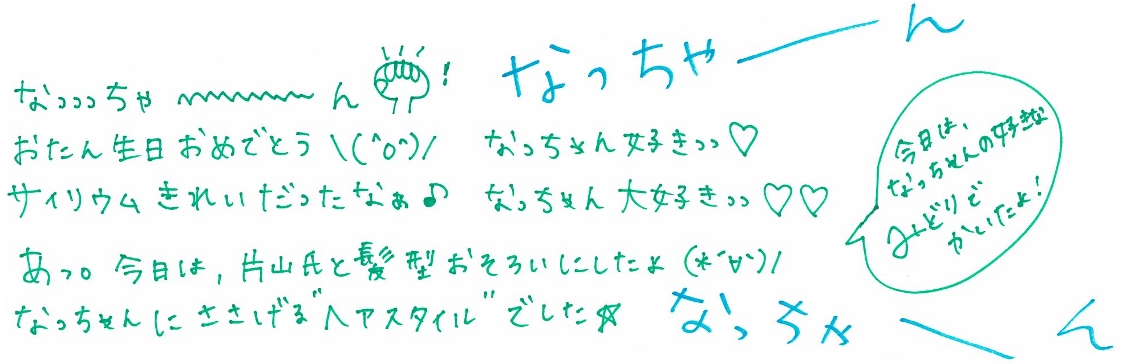 なっちゃーーん
なっっっちゃ〜〜〜〜ん!
おたん生日おめでとう \(^o^)/ なっちゃん好きっっ♡
サイリウムきれいだったなぁ♪ なっちゃん大好きっっ♡♡
あっ。今日は,片山氏と髪型おそろいにしたよ (*´∀`)/
なっちゃんにささげる"ヘアスタイル"でした☆
なっちゃーーん
今日は,
なっちゃんの好きな
みどりで
かいたよ!